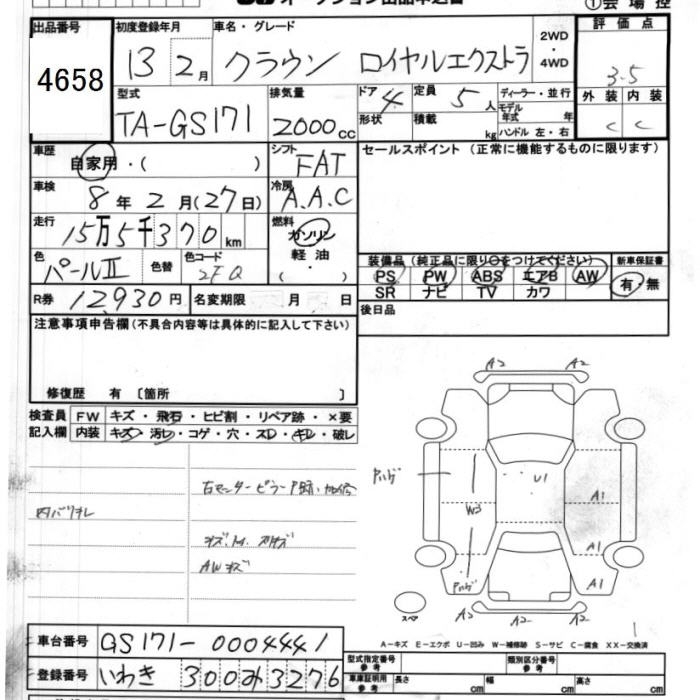 ①会場控
出品番号 初度登録年月 車名・グレード 2WD・4WD 評価点
4658 13 2月 クラウン ロイヤルエクストラ 3.5
型式 排気量 ドア 4 定員 5人 ディーラー・並行 外装 内装
TA-GS171 2000cc 形状 積載 kg モデル年式 年 ハンドル 左・右 C C
車歴 自家用・( ) シフト FAT セールスポイント (正常に機能するものに限ります)
車検 8年2月(27日) 冷房 A.A.C
走行 15万5千370km 燃料 ガソリン 軽油 ・( )
色 パールⅡ 色替 色コード 2FQ 装備品(純正品に限り○をつけてください) 新車保証書
PS PW ABS エアB AW 有・無
SR ナビ TV カワ
R券 12,930円 名変期限 月 日 後日品
注意事項申告欄(不具合内容等は具体的に記入して下さい)
修復歴 有 〔箇所 〕
検査員 FW キズ・飛石・ヒビ割・リペア跡・×要
記入欄 内装 キズ・汚レ・コゲ・穴・スレ・キレ・破レ
A2 A2
U1
W3 A1
A1
A1
A2 A2
内バリキレ
AWキズ
スペア
A-キズ E-エクボ U-凹み W-補修跡 S-サビ C-腐食 XX-交換済
車台番号 GS171-0004441
登録番号 いわき 300み3276
型式指定番号 参考 類別区分番号 参考
車庫証明用 参考 長さ cm 幅 cm 高さ cm